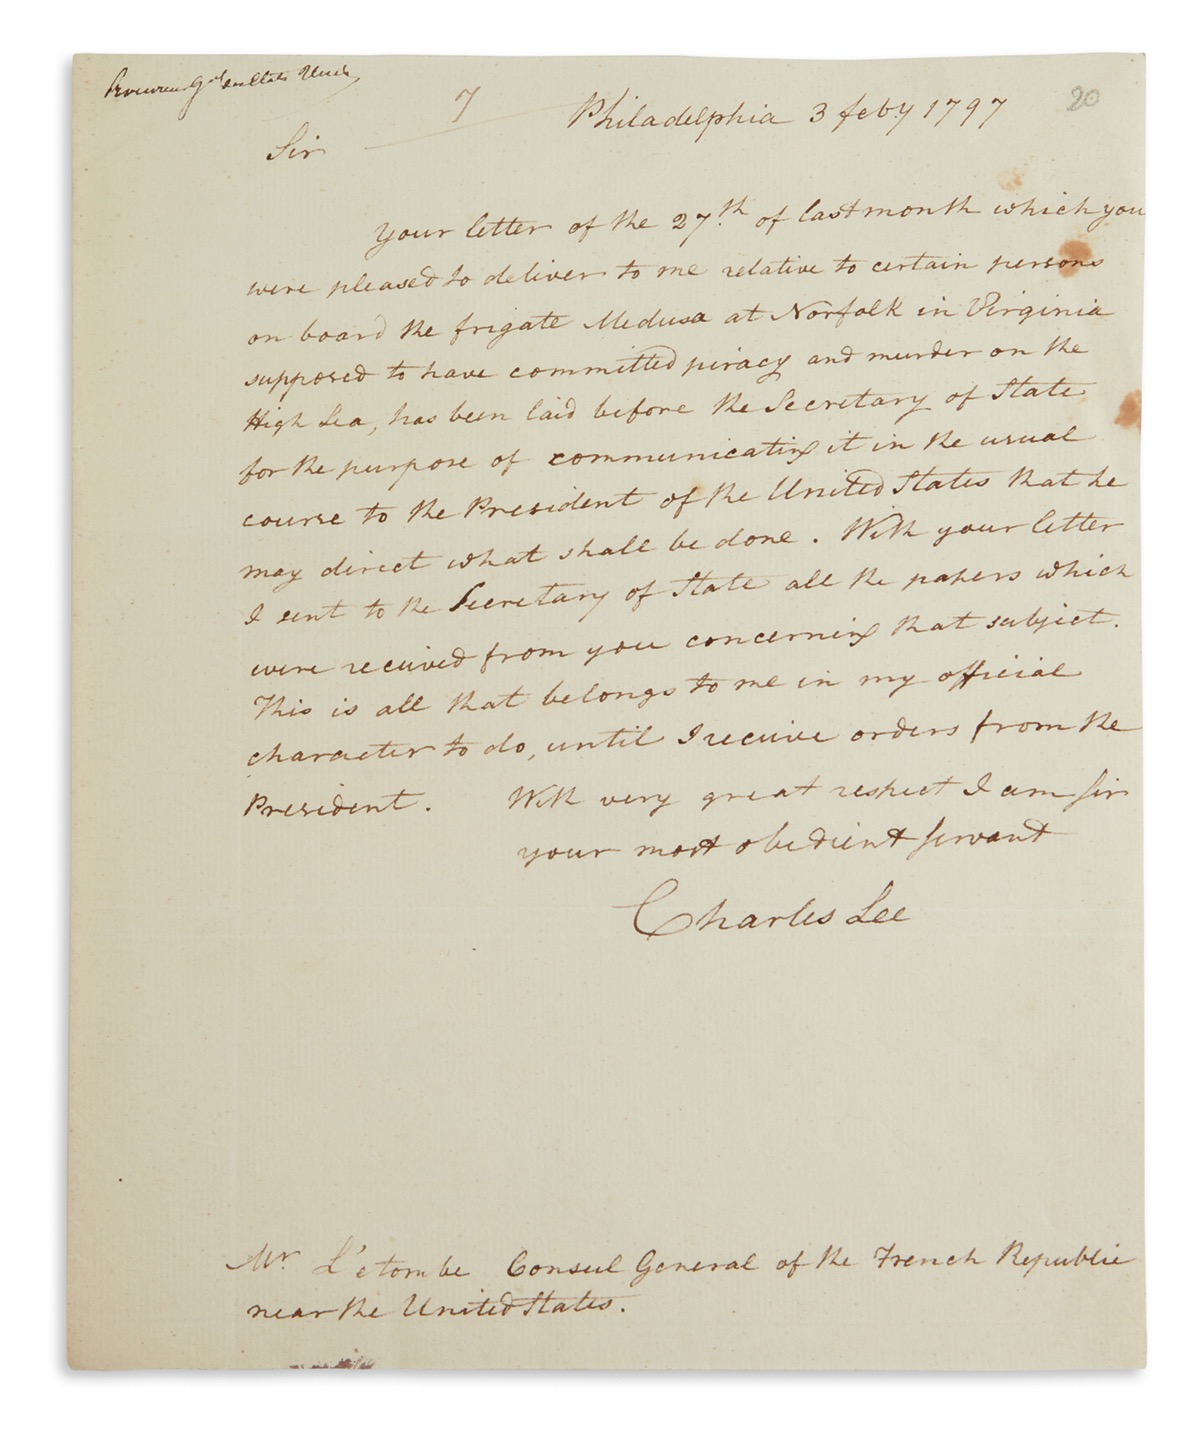 Procureur Gal des Etats Unis
7
Philadelphia 3 feby 1797
20
Sir
Your letter of the 27th. of last month which you
were pleased to deliver to me relative to certain persons
on board the frigate Medusa at Norfolk in Virginia
supposed to have committed piracy and murder on the
High Sea, has been laid before the Secretary of State
for the purpose of communicating it in the usual
course to the President of the United States that he
may direct what shall be done. With your letter
I sent to the Secretary of State all the papers which
were received from you concerning that subject.
This is all that belongs to me in my official
character to do, until I receive orders from the
President. With very great respect I am Sir
your most obedient Servant
Charles Lee
Mr. L'etombe Consul General of the French Republic
near the United States.